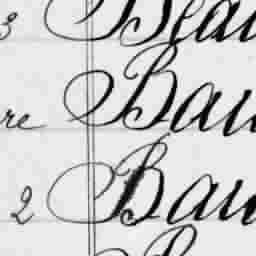 3 Beau
re Bau
2 Bau